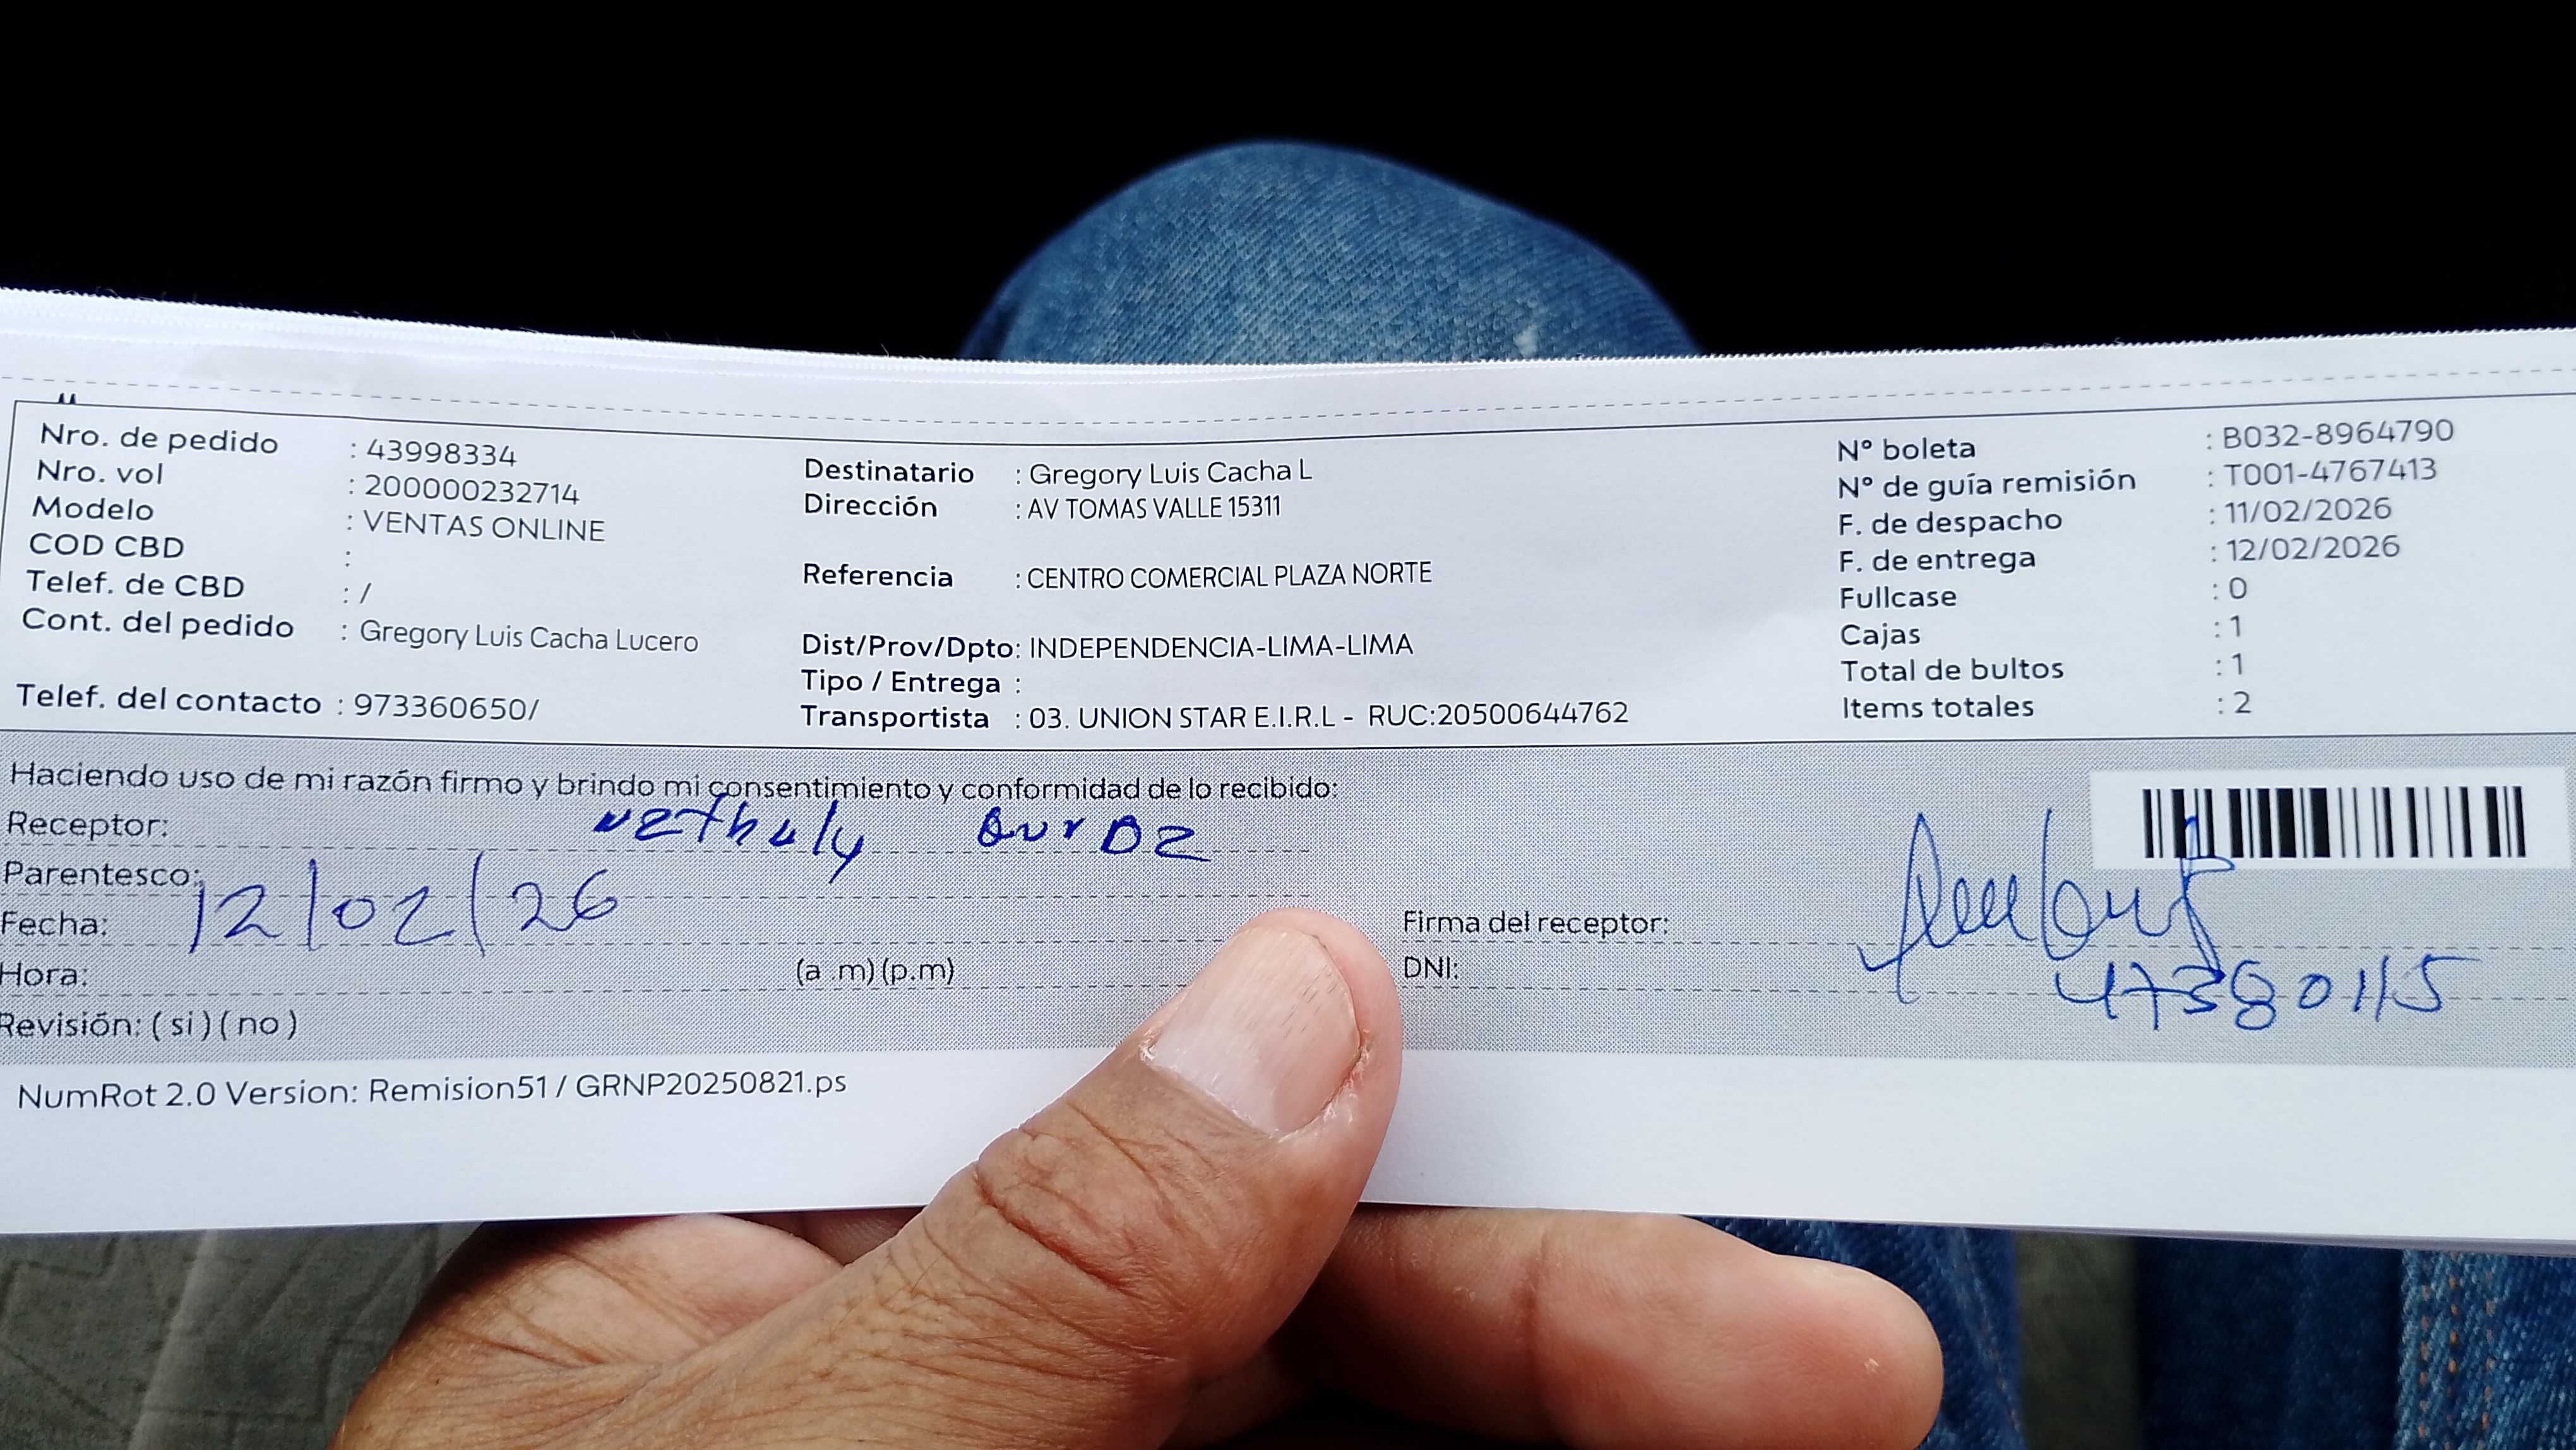 Nro. de pedido : 43998334
Nro. vol : 200000232714
Modelo : VENTAS ONLINE
COD CBD :
Telef. de CBD : /
Cont. del pedido : Gregory Luis Cacha Lucero
Telef. del contacto : 973360650/
Destinatario : Gregory Luis Cacha L
Dirección : AV TOMAS VALLE 15311
Referencia : CENTRO COMERCIAL PLAZA NORTE
Dist/Prov/Dpto: INDEPENDENCIA-LIMA-LIMA
Tipo / Entrega :
Transportista : 03. UNION STAR E.I.R.L - RUC:20500644762
N° boleta : B032-8964790
N° de guía remisión : T001-4767413
F. de despacho : 11/02/2026
F. de entrega : 12/02/2026
Fullcase : 0
Cajas : 1
Total de bultos : 1
Items totales : 2
Haciendo uso de mi razón firmo y brindo mi consentimiento y conformidad de lo recibido:
Receptor:
Parentesco:
Fecha: 12/02/26
Hora: (a .m) (p.m)
Revisión: ( si ) ( no )
Firma del receptor:
DNI: 47380115
NumRot 2.0 Version: Remision51 / GRNP20250821.ps